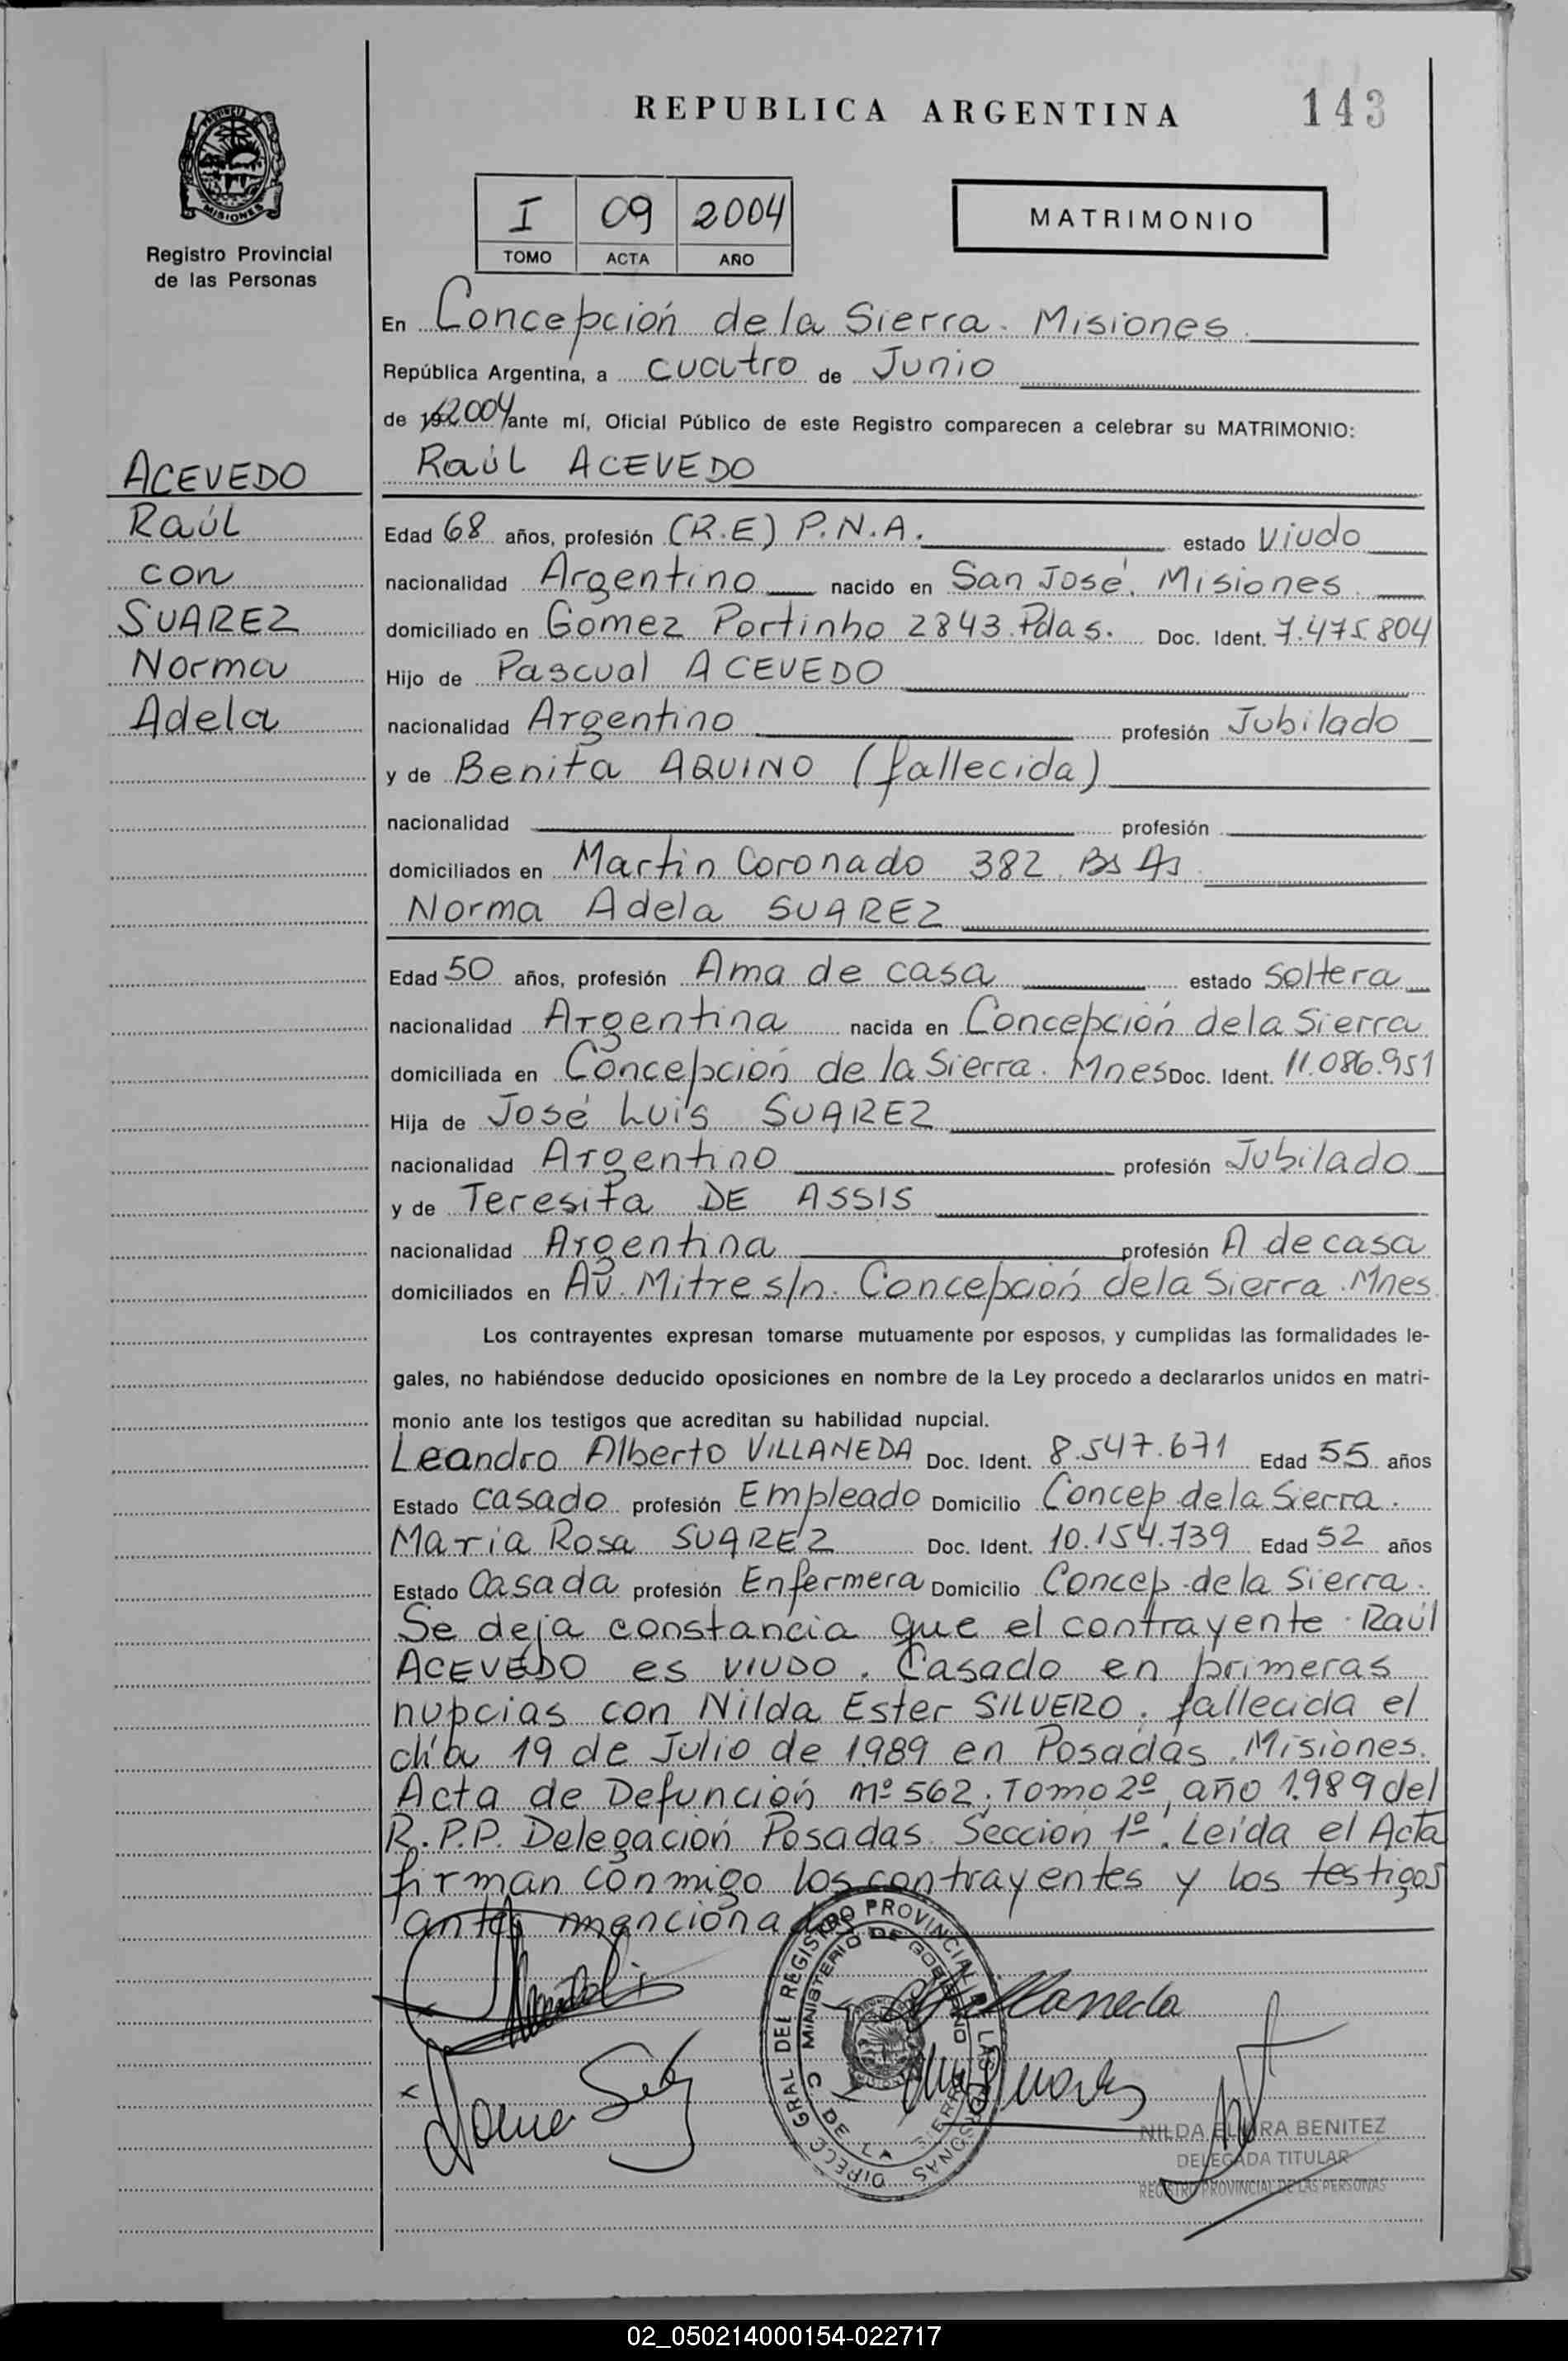 REPUBLICA ARGENTINA
143
PROVINCIA DE
MISIONES
Registro Provincial
de las Personas
I 09 2004
TOMO ACTA AÑO
MATRIMONIO
En Concepción de la Sierra. Misiones.
República Argentina, a cuatro de Junio
de 2004 ante mí, Oficial Público de este Registro comparecen a celebrar su MATRIMONIO:
Raúl ACEVEDO
ACEVEDO
Raúl
con
SUAREZ
Norma
Adela
Edad 68 años, profesión (R.E) P.N.A. estado Viudo
nacionalidad Argentino nacido en San José. Misiones.
domiciliado en Gomez Portinho 2843 Pdas. Doc. Ident. 7.475.804
Hijo de Pascual ACEVEDO
nacionalidad Argentino profesión Jubilado
y de Benita AQUINO (fallecida)
nacionalidad profesión
domiciliados en Martin Coronado 382 Bs As
Norma Adela SUAREZ
Edad 50 años, profesión Ama de casa estado Soltera
nacionalidad Argentina nacida en Concepción de la Sierra
domiciliada en Concepción de la Sierra. Mnes Doc. Ident. 11.086.951
Hija de José Luis SUAREZ
nacionalidad Argentino profesión Jubilado
y de Teresita DE ASSIS
nacionalidad Argentina profesión A de casa
domiciliados en Av. Mitre s/n. Concepción de la Sierra. Mnes.
Los contrayentes expresan tomarse mutuamente por esposos, y cumplidas las formalidades le-
gales, no habiéndose deducido oposiciones en nombre de la Ley procedo a declararlos unidos en matri-
monio ante los testigos que acreditan su habilidad nupcial.
Leandro Alberto VILLANEDA Doc. Ident. 8.547.671 Edad 55 años
Estado casado profesión Empleado Domicilio Concep de la Sierra.
Maria Rosa SUAREZ Doc. Ident. 10.154.739 Edad 52 años
Estado Casada profesión Enfermera Domicilio Concep. de la Sierra.
Se deja constancia que el contrayente Raúl
ACEVEDO es VIUDO. Casado en primeras
nupcias con Nilda Ester SILVERO, fallecida el
día 19 de Julio de 1.989 en Posadas. Misiones.
Acta de Defunción Nº 562, Tomo 2º, año 1.989 del
R.P.P. Delegación Posadas. Sección 1º. Leída el Acta
firman conmigo los contrayentes y los testigos
antes mencionados
DIRECC GRAL DEL REGISTRO PROVINCIAL DE LAS PERSONAS
MINISTERIO DE GOBIERNO
C. DE LA SIERRA
Villaneda
NILDA ELVIRA BENITEZ
DELEGADA TITULAR
REGISTRO PROVINCIAL DE LAS PERSONAS
02_050214000154-022717